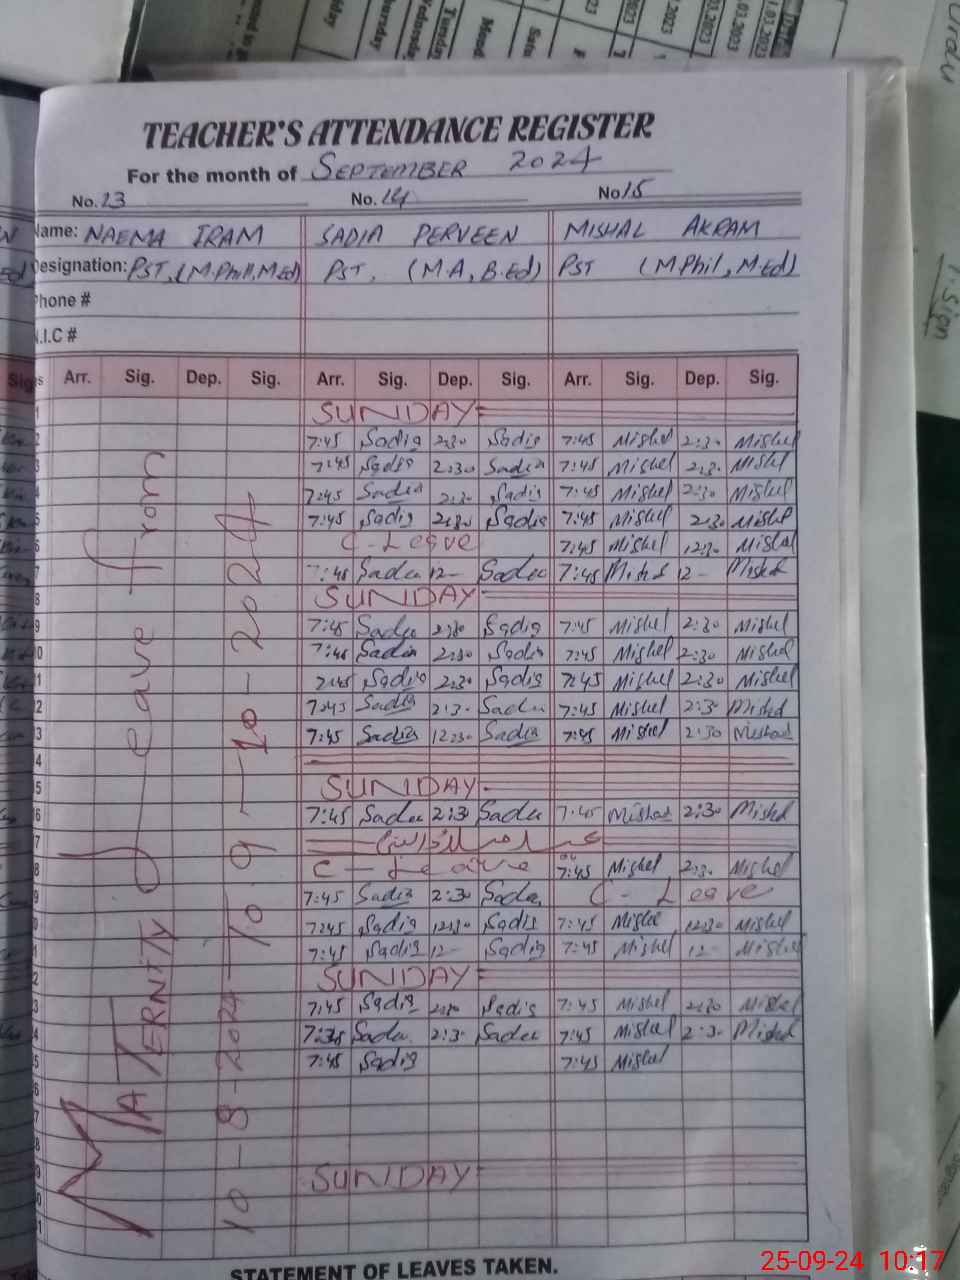 TEACHER'S ATTENDANCE REGISTER
For the month of SEPTEMBER 2024
No. 13 No. 14 No 15
Name: NAEMA IRAM SADIA PERVEEN MISHAL AKRAM
Designation: PST, (M.Phil, M.Ed) PST, (M.A, B.Ed) PST (M Phil, M.Ed)
Phone #
N.I.C #
Arr. Sig. Dep. Sig. Arr. Sig. Dep. Sig. Arr. Sig. Dep. Sig.
MATERNITY Leave from
10-8-2024 To 9-10-2024
1 SUNDAY
2 7:45 Sadia 2:30 Sadia 7:45 Mishel 2:30 Mishel
3 7:45 Sadia 2:30 Sadia 7:45 Mishel 2:30 Mishel
4 7:45 Sadia 2:30 Sadia 7:45 Mishel 2:30 Mishel
5 7:45 Sadia 2:30 Sadia 7:45 Mishel 2:30 Mishel
6 C-Leave 7:45 Mishel 12:30 Mishel
7 7:45 Sadia 12- Sadia 7:45 Mishel 12- Mishel
8 SUNDAY
9 7:45 Sadia 2:30 Sadia 7:45 Mishel 2:30 Mishel
0 7:45 Sadia 2:30 Sadia 7:45 Mishel 2:30 Mishel
1 7:45 Sadia 2:30 Sadia 7:45 Mishel 2:30 Mishel
2 7:45 Sadia 2:30 Sadia 7:45 Mishel 2:30 Mishel
3 7:45 Sadia 12:30 Sadia 7:45 Mishel 2:30 Mishel
4
5 SUNDAY
6 7:45 Sadia 2:30 Sadia 7:45 Mishel 2:30 Mishel
7
8 C-Leave 7:45 Mishel 2:30 Mishel
9 7:45 Sadia 2:30 Sadia C-Leave
0 7:45 Sadia 12:30 Sadia 7:45 Mishel 12:30 Mishel
1 7:45 Sadia 12- Sadia 7:45 Mishel 12- Mishel
2 SUNDAY
3 7:45 Sadia 2:30 Sadia 7:45 Mishel 2:30 Mishel
4 7:35 Sadia 2:30 Sadia 7:45 Mishel 2:30 Mishel
5 7:45 Sadia 7:45 Mishel
6
7
8
9 SUNDAY
0
1
STATEMENT OF LEAVES TAKEN.
25-09-24 10:17